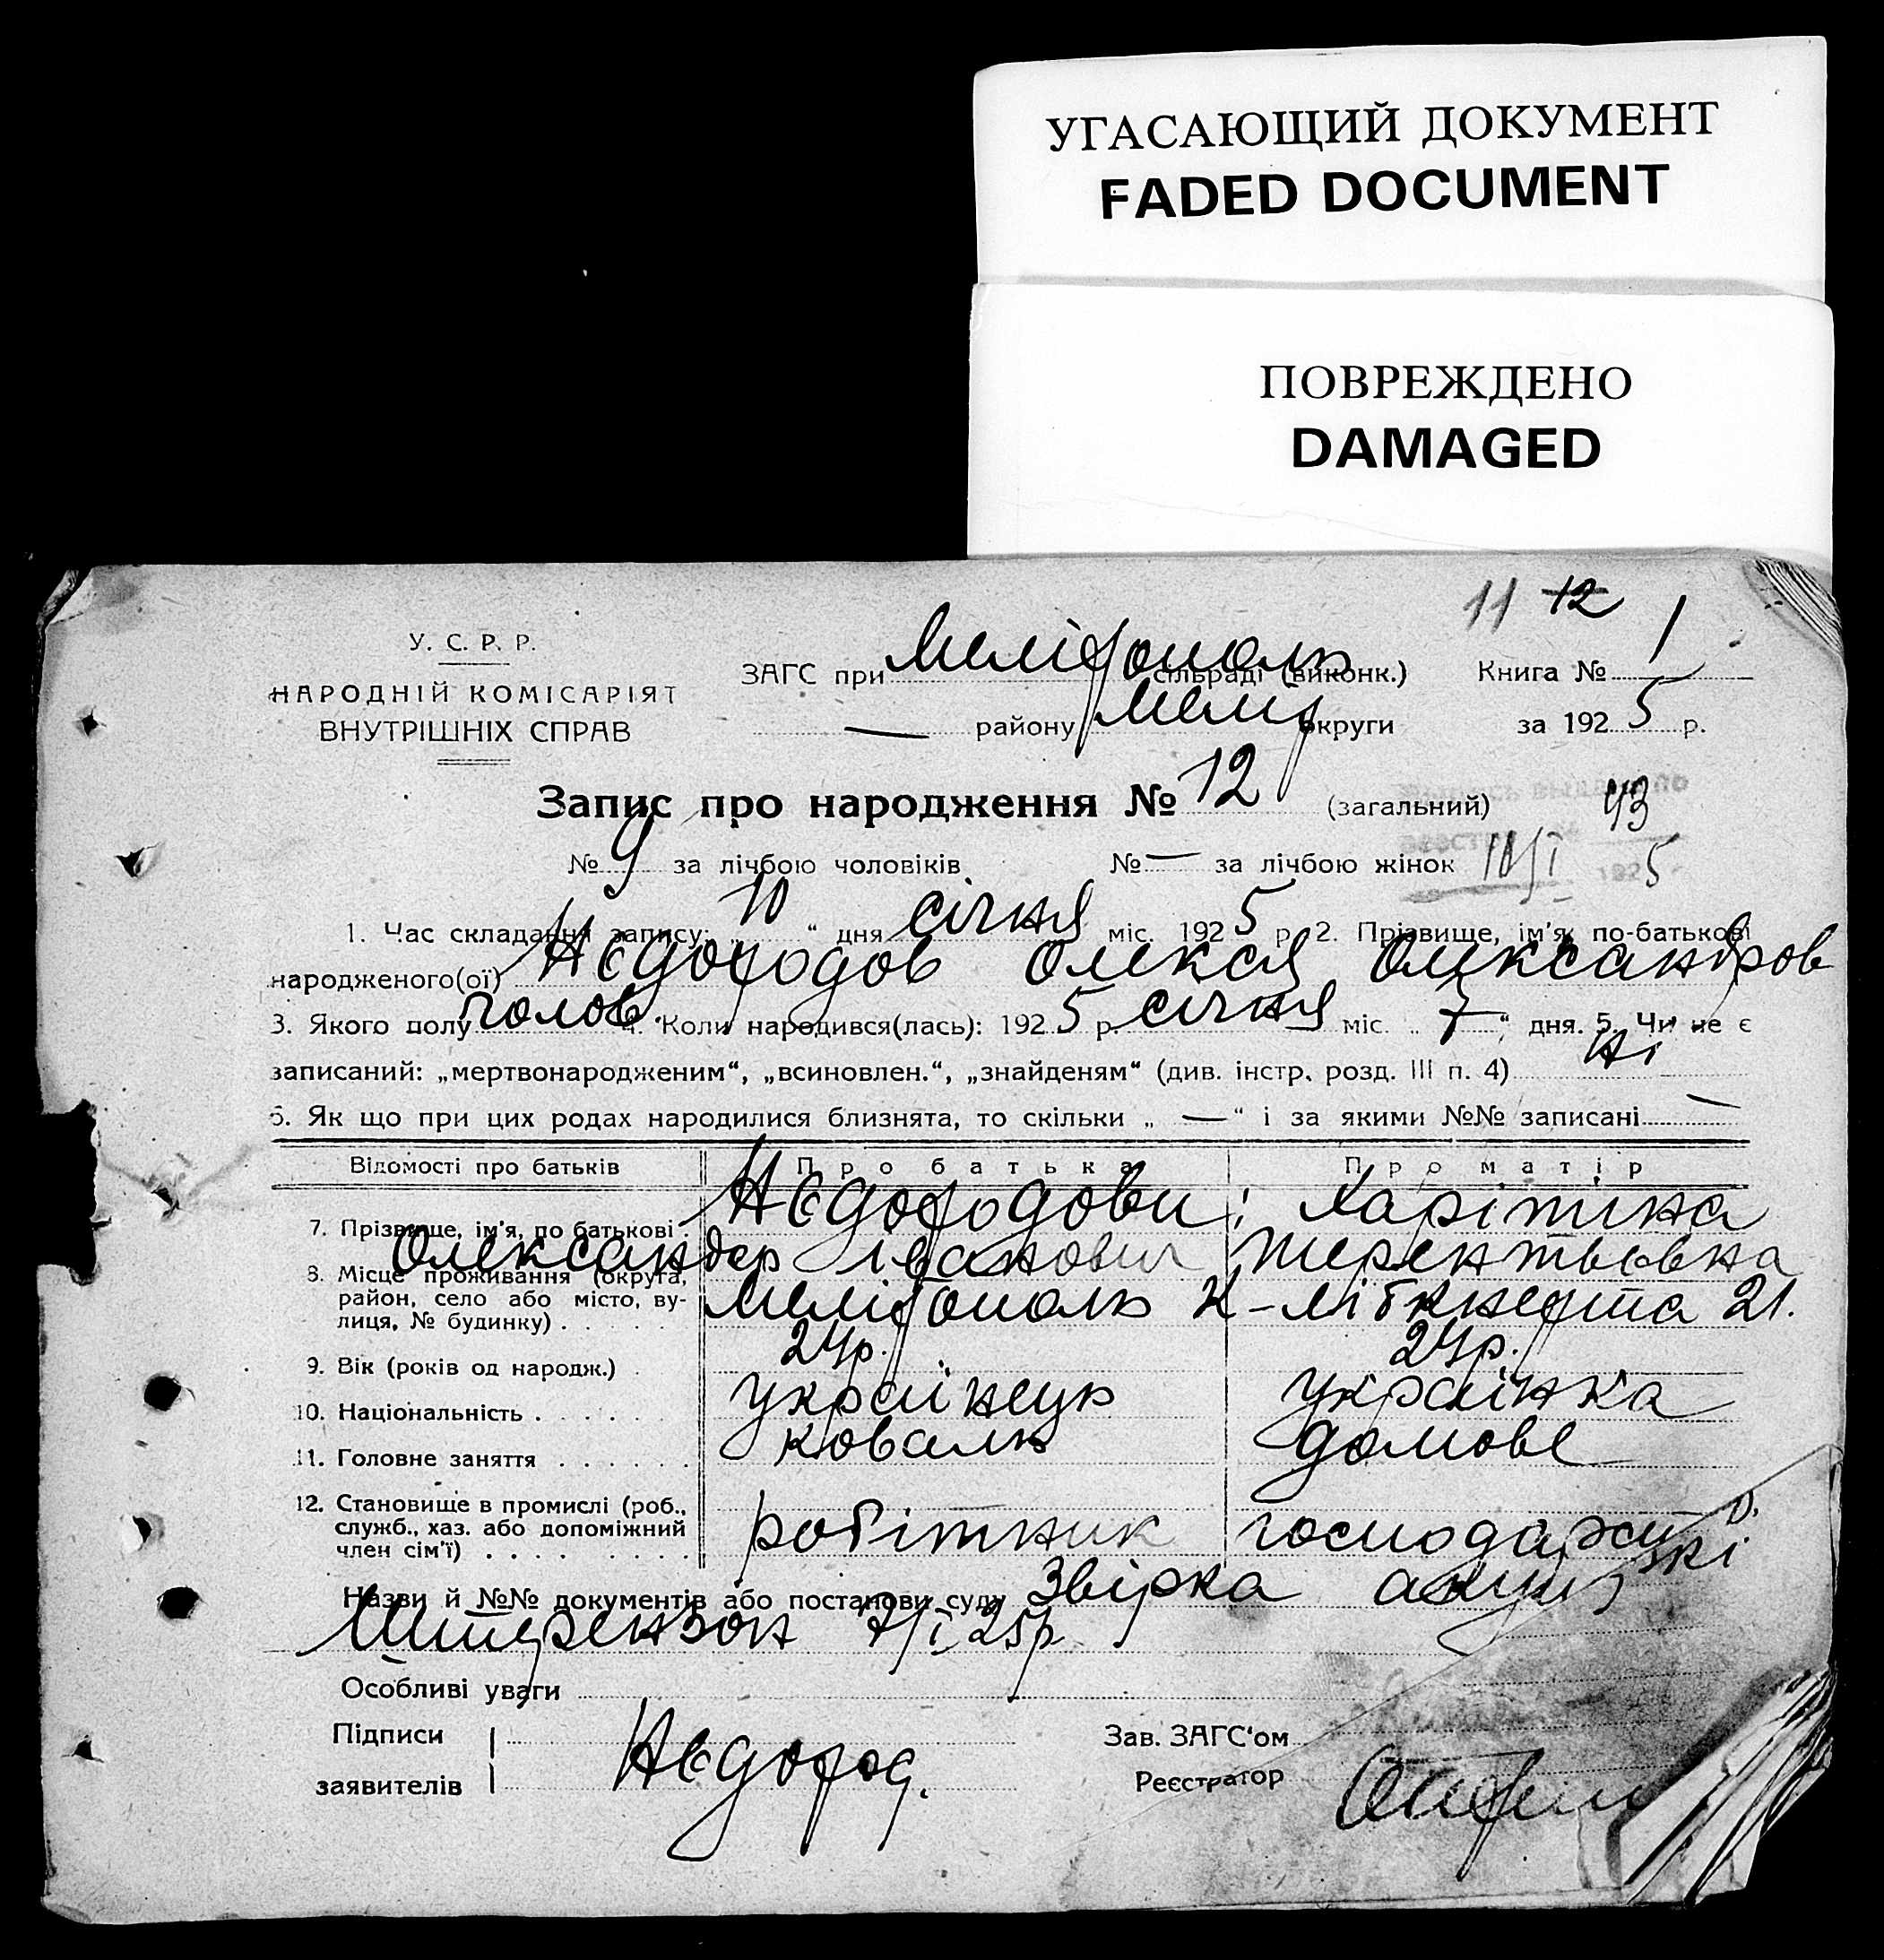 УГАСАЮЩИЙ ДОКУМЕНТ
FADED DOCUMENT
ПОВРЕЖДЕНО
DAMAGED
11 12
У. С. Р. Р.
НАРОДНІЙ КОМІСАРІЯТ
ВНУТРІШНІХ СПРАВ
ЗАГС при Мелітополь сільраді (виконк.) Книга № 1
— району Меліт округи за 1925 р.
Запис про народження № 12 (загальний) 43
№ 9 за лічбою чоловіків № — за лічбою жінок 10/I 1925
1. Час складання запису: „10“ дня січня міс. 1925 р. 2. Прізвище, ім'я, по-батькові
народженого(ої) Нєдородов Олекся Олександров
3. Якого полу полов. 4. Коли народився(лась): 1925 р. січня міс. „7“ дня. 5. Чи не є
записаний: „мертвонародженим“, „всиновлен.“, „знайденям“ (див. інстр. розд. III п. 4) Ні
6. Як що при цих родах народилися близнята, то скільки „ — “ і за якими №№ записані —
Відомості про батьків Про батька Про матір
7. Прізвище, ім'я, по батькові . Нєдородови: Харітина
Олександер Іванович Терентьєвна
8. Місце проживання (округа,
район, село або місто, ву-
лиця, № будинку) . . . . . Мелітополь К-Лібкнехта 21.
9. Вік (років од народж.) . 24р. 24р.
10. Національність . . . . . . українець українка
11. Головне заняття . . . . . . коваль домове
12. Становище в промислі (роб.,
служб., хаз. або допоміжний
член сім'ї) . . . . . . . . . робітник господар
Назви й №№ документів або постанови суду Звірка акуш
7/I 25р
Особливі уваги
Підписи
заявителів Нєдород.
Зав. ЗАГС'ом
Реєстратор